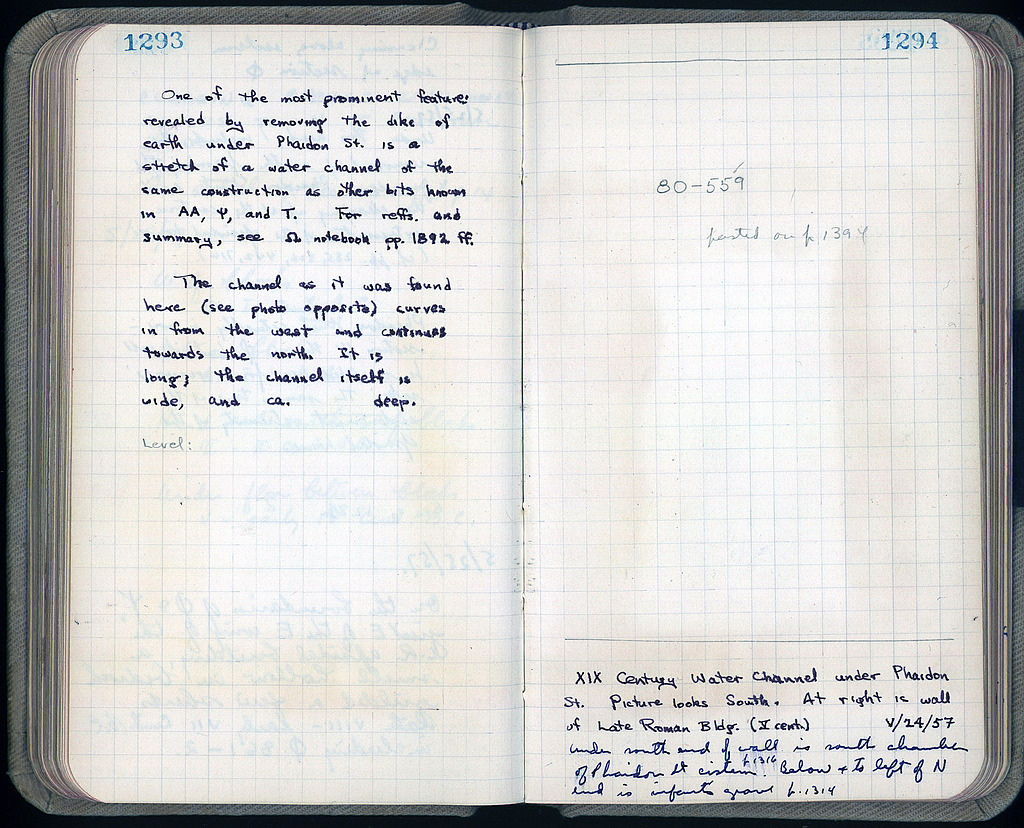 1293
One of the most prominent features
revealed by removing the dike of
earth under Phaidon St. is a
stretch of a water channel of the
same construction as other bits known
in AA, Ψ, and T. For reffs. and
summary, see Ω notebook pp. 1892 ff.
The channel as it was found
here (see photo opposite) curves
in from the west and continues
towards the north. It is
long; the channel itself is
wide, and ca. deep.
Level:
1294
80-559
pasted on p 1394
XIX Century Water Channel under Phaidon
St. Picture looks South. At right is wall
of Late Roman Bldg. (V cent.) V/24/57
under south end of wall is south chamber
of Phaidon St cistern p.1316. Below + to left of N
end is infants grave p. 1314